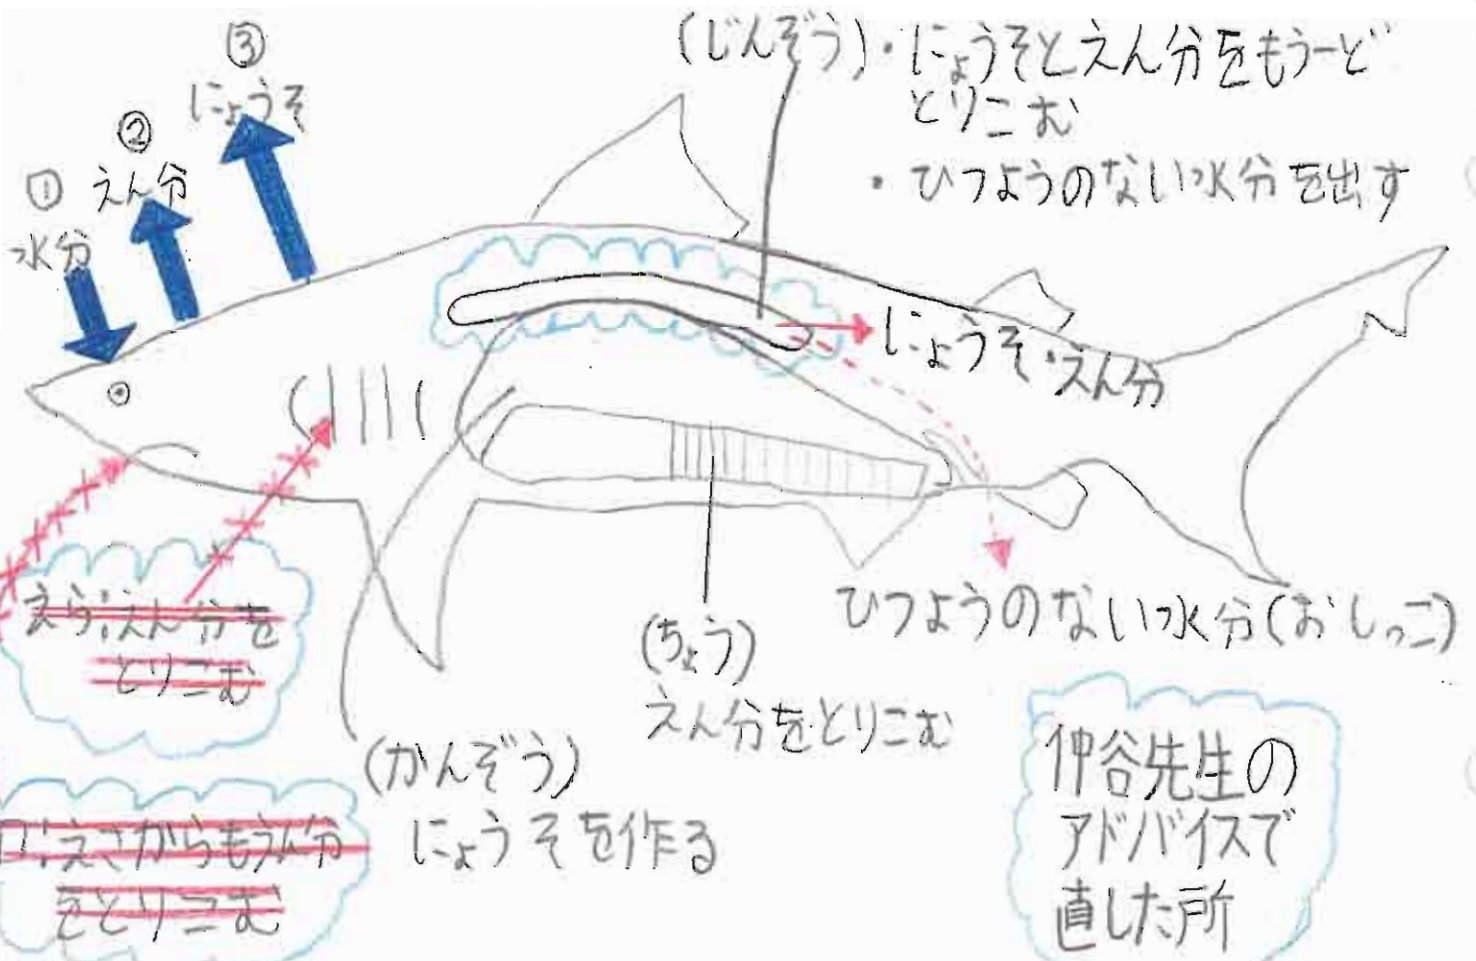 ③
にょうそ
②
えん分
①
水分
(じんぞう)・にょうそとえん分をもう一ど
とりこむ
・ひつようのない水分を出す
にょうそ・えん分
ひつようのない水分(おしっこ)
えら;えん分を
とりこむ
(ちょう)
えん分をとりこむ
(かんぞう)
にょうそを作る
口;えさからもえん分
をとりこむ
仲谷先生の
アドバイスで
直した所